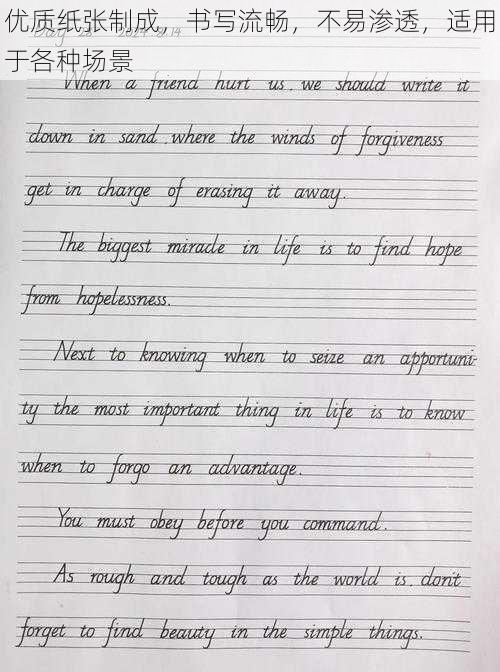 优质纸张制成，书写流畅，不易渗透，适用
于各种场景
Day 28 2024.8.14
When a friend hurt us, we should write it
down in sand, where the winds of forgiveness
get in charge of erasing it away.
The biggest miracle in life is to find hope
from hopelessness.
Next to knowing when to seize an apportuni-
ty the most important thing in life is to know
when to forgo an advantage.
You must obey before you command.
As rough and tough as the world is, don't
forget to find beauty in the simple things.